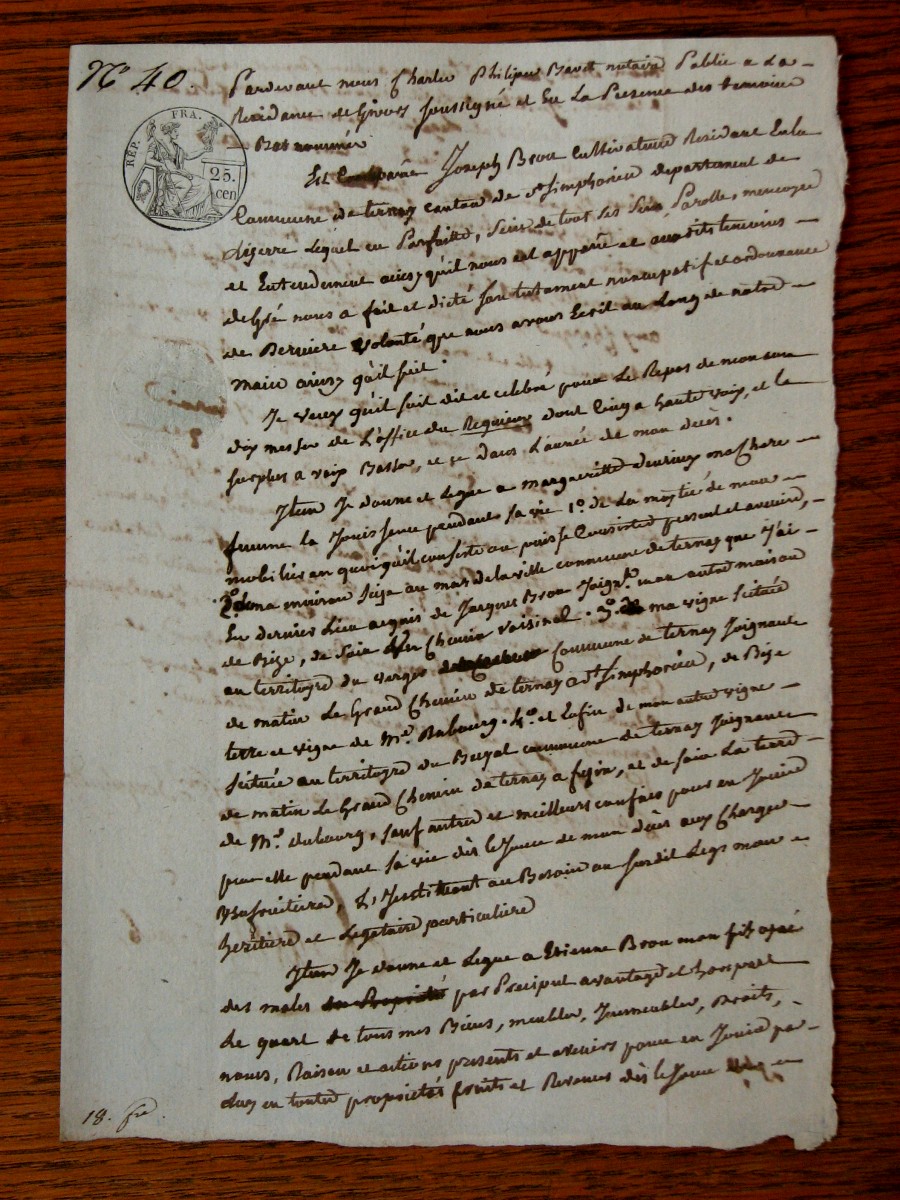 N° 40.
RÉP. FRA.
25. cen
Pardevant nous Charles Philipe notaire Public a la
Residance de Givors soussigné et En La Presence des temoins
Bas nommés
Est Comparû Joseph Brou Cultivateur Residant En la
Commune de ternay canton de St Simphorien departement de
L'izerre Lequel en Parfaitte, Sens de tout ses Sens, Parolle, memoyre
et Entendement ainsy qu'il nous est apparû et auxdits temoins
de Gré nous a fait et dicté son testament nuncupatif et ordonnance
de Derniere Volonté que nous avons Ecrit au Long de notre
main ainsy qu'il suit.
Je Veux qu'il soit dit et celebré pour Le Repos de mon ame
dix messes de L'office du Requiem dont Cinq a haute voix, et le
surplus a voix Basse, et ce dans L'année de mon décès.
Item Je donne et Legue a margueritte ma Chere
femme la Jouissance pendant sa vie 1°. de La moytié de mon
mobilier en quoi qu'il consiste ou puisse Consister present et avenir,
2°. de ma Size au mas de la ville commune de ternay que J'ai
En dernier Lieu acquis de Jacques Brou Joignt. mon autre maison
de Bize, de soir Un Chemin Voisinal. 3°. de ma vigne Scituée
au territoyre du Verges Commune de ternay Joignante
de matin Le Grand Chemin de ternay a St Simphorien, de Bize
terre et vigne de Mr. Dubourg. 4°. et Enfin de mon autre vigne
Scituée au territoyre du commune de ternay Joignante
de matin Le Grand Chemin de ternay a , et de soir La terre
de Mr. dubourg, sauf autres et meilleurs confins pour en Jouir
par elle pendant sa vie dès le Jour de mon décès aux Charges
Usufruitieres, L'Instituant au Besoin au susdit Legs mon
heritiere et Legataire particuliere
Item Je donne et Legue a Etienne Brou mon fils ayné
des males par Préciput avantage et hors part
Le quart de tous mes Biens, meubles, Immeubles, Droits,
noms, Raison et actions presents et avenirs pour en Jouir par
Luy en toutes proprietés fruits et Revenus dès le Jour
18.